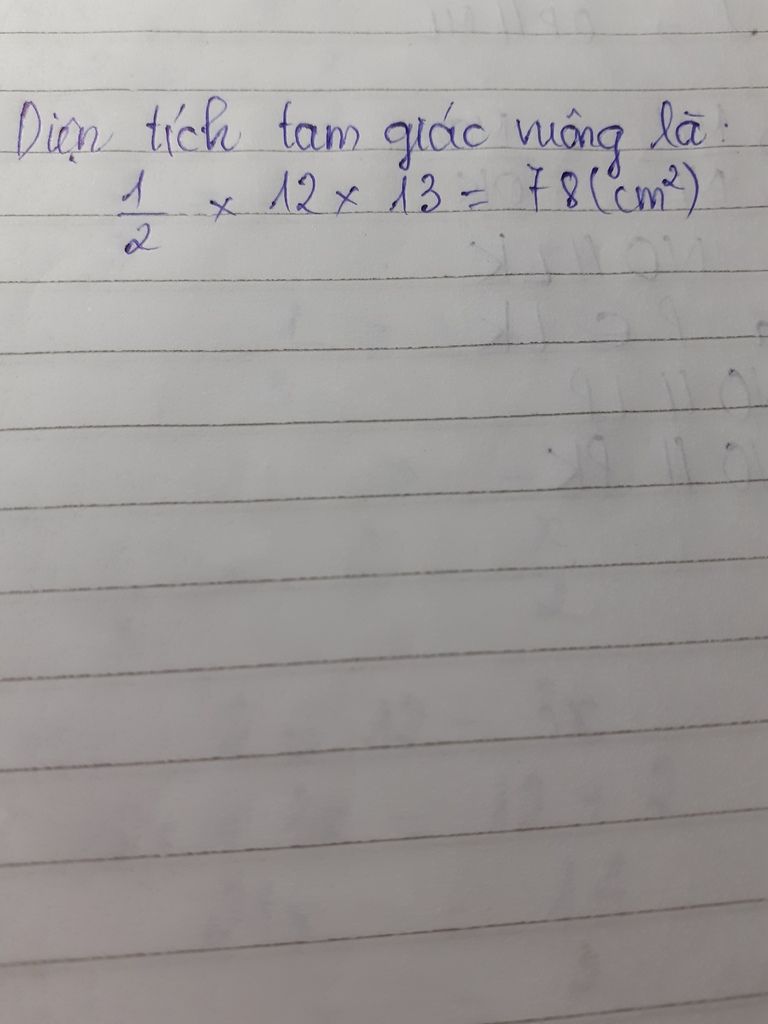 Diện tích tam giác vuông là:
1/2 × 12 × 13 = 78 (cm²)